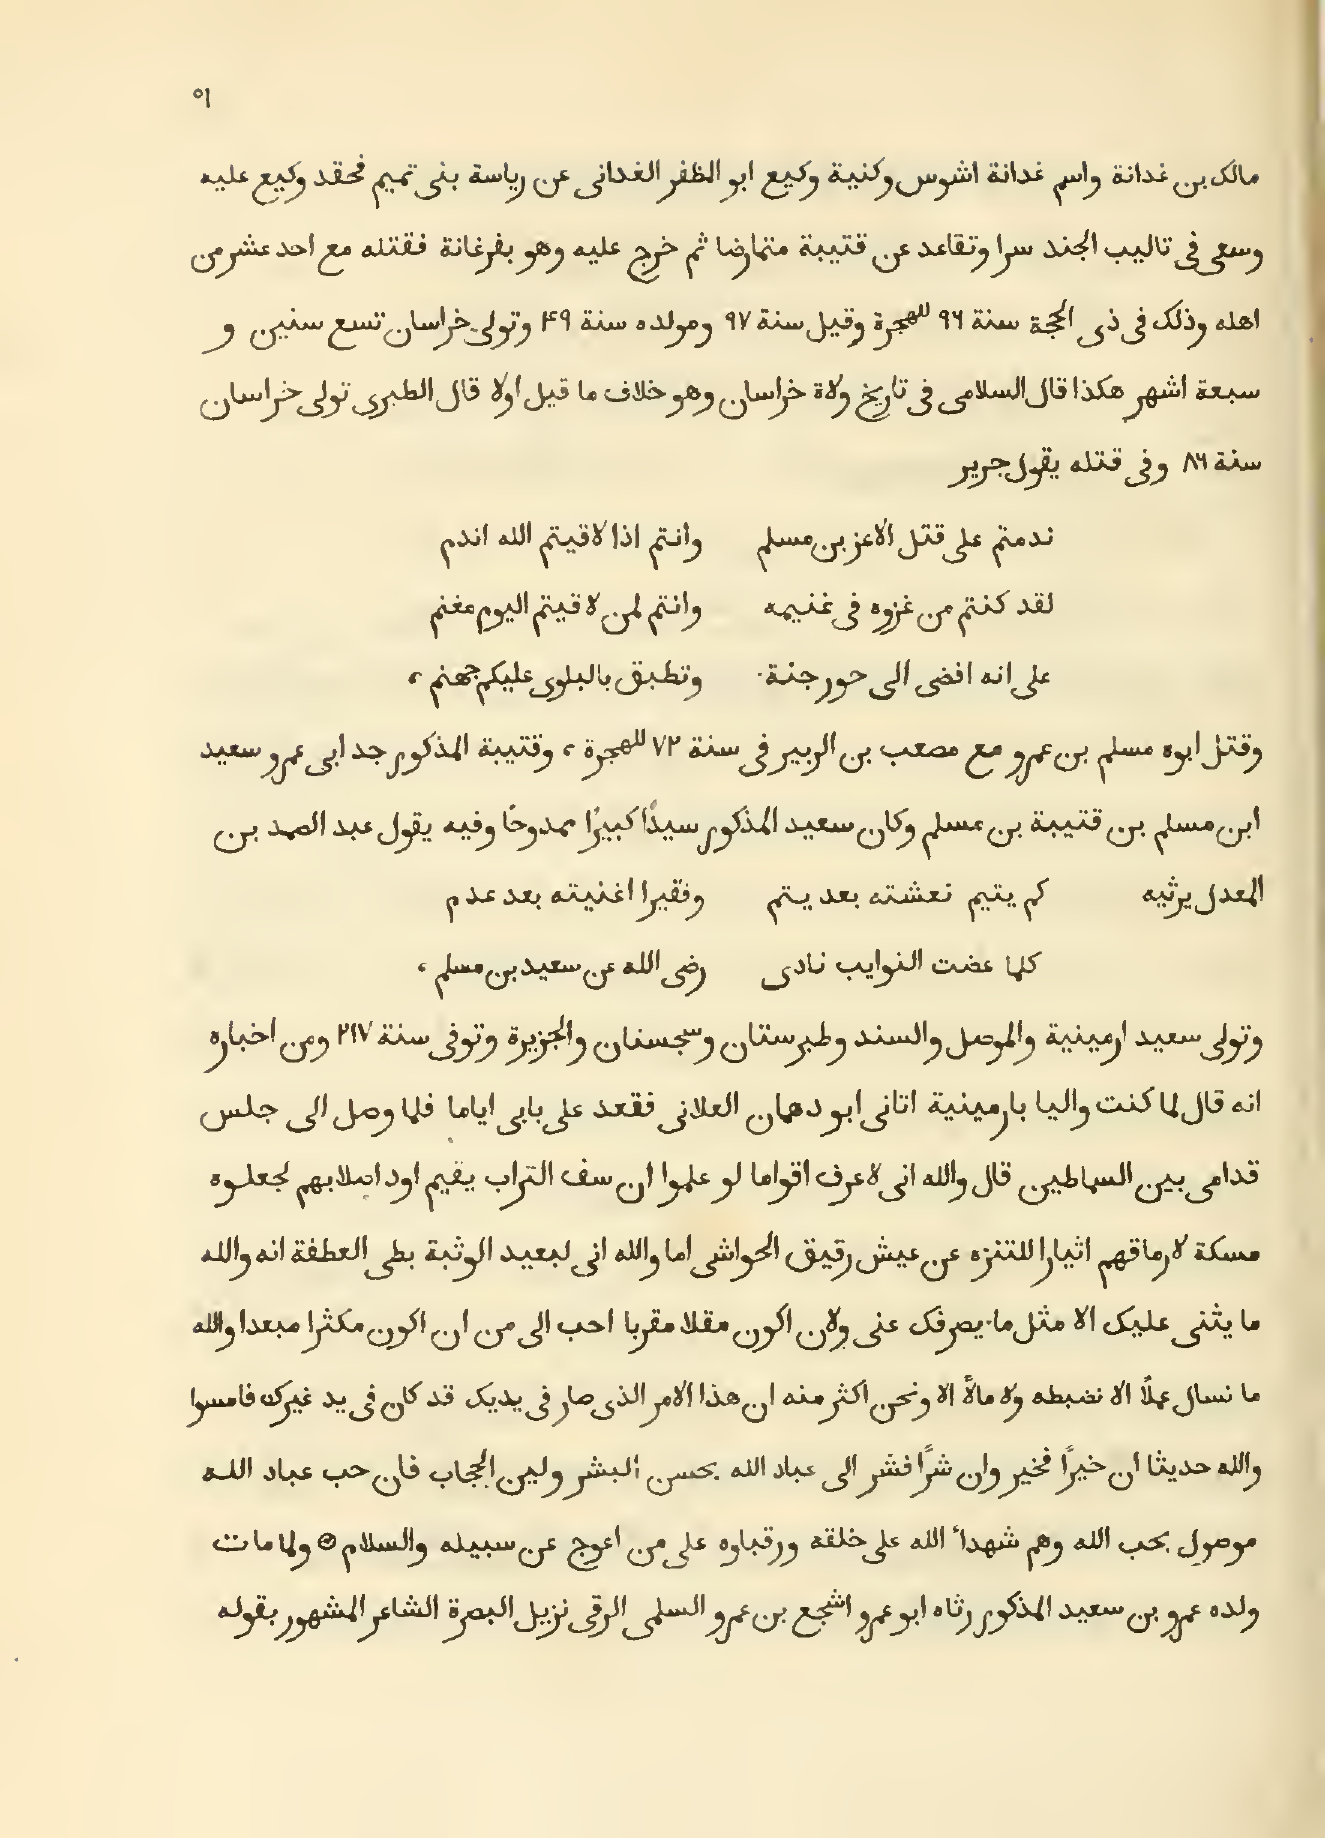 ٥١
مالك بن غدانة واسم غدانة اشوس وكنية وكيع ابو الظفر الغدانى عن رياسة بنى تميم فحقد وكيع عليه
وسعى فى تاليب الجند سرا وتقاعد عن قتيبة متمارضا ثم خرج عليه وهو بفرغانة فقتله مع احد عشر من
اهله وذلك فى ذى الحجة سنة ٩٦ للهجرة وقيل سنة ٩٧ ومولده سنة ۴٩ وتولى خراسان تسع سنين و
سبعة اشهر هكذا قال السلامى فى تاريخ ولاة خراسان وهو خلاف ما قيل اولا قال الطبرى تولى خراسان
سنة ٨٦ وفى قتله يقول جرير
ندمتم على قتل الاعز بن مسلم وانتم اذا لاقيتم الله اندم
لقد كنتم من غزوه فى غنيمه وانتم لمن لاقيتم اليوم مغنم
على انه افضى الى حور جنة وتطبق بالبلوى عليكم جهنم ،
وقتل ابوه مسلم بن عمرو مع مصعب بن الربير فى سنة ٧٢ للهجرة ، وقتيبة المذكور جد ابى عمرو سعيد
ابن مسلم بن قتيبة بن مسلم وكان سعيد المذكور سيدًا كبيرًا ممدوحًا وفيه يقول عبد الصمد بن
المعدل يرثيه كم يتيم نعشته بعد يتم وفقيرا اغنيته بعد عدم
كلما عضت النوايب نادى رضى الله عن سعيد بن مسلم ،
وتولى سعيد ارمينية والموصل والسند وطبرستان وسجستان والجزيرة وتوفى سنة ٢١٧ ومن اخباره
انه قال لما كنت واليا بارمينية اتانى ابو دهمان العلانى فقعد على بابى اياما فلما وصل الى جلس
قدامى بين السماطين قال والله انى لاعرف اقواما لو علموا ان سف التراب يقيم اود اصلابهم لجعلوه
مسكة لارماقهم اثيارا للتنزه عن عيش رقيق الحواشى اما والله انى لبعيد الوثبة بطى العطفة انه والله
ما يثنى عليك الا مثل ما يصرفك عنى ولان اكون مقلا مقربا احب الى من ان اكون مكثرا مبعدا والله
ما نسال عملًا الا نضبطه ولا مالاً الا ونحن اكثر منه ان هذا الامر الذى صار فى يديك قد كان فى يد غيرك فامسوا
والله حديثا ان خيرًا فخير وان شرًا فشر الى عباد الله بحسن البشر ولين الحجاب فان حب عباد الله
موصول بحب الله وهم شهدآ الله على خلقه ورقباوه على من اعوج عن سبيله والسلام ۞ ولما مات
ولده عمرو بن سعيد المذكور رثاه ابو عمرو اشجع بن عمرو السلمى الرقى نزيل البصرة الشاعر المشهور بقوله